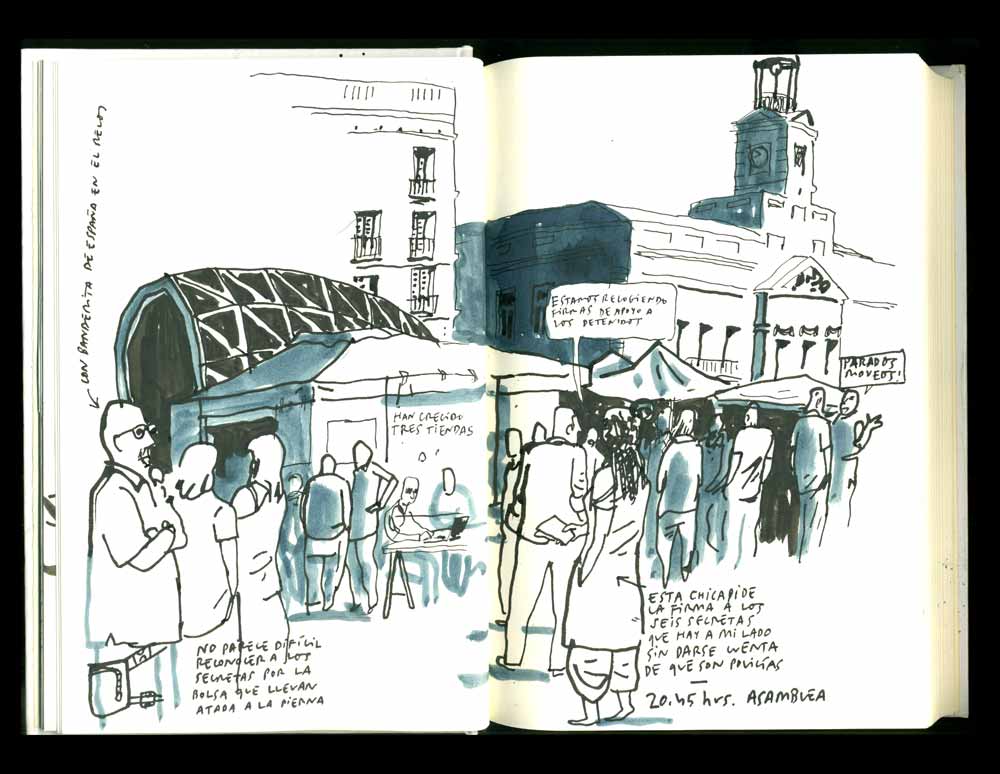 CON BANDERITA DE ESPAÑA EN EL RELOJ
HAN CRECIDO
TRES TIENDAS
NO PARECE DIFÍCIL
RECONOCER A LOS
SECRETAS POR LA
BOLSA QUE LLEVAN
ATADA A LA PIERNA
ESTAMOS RECOGIENDO
FIRMAS DE APOYO A
LOS DETENIDOS
PARADOS
MOVEOS!
ESTA CHICA PIDE
LA FIRMA A LOS
SEIS SECRETAS
QUE HAY A MI LADO
SIN DARSE CUENTA
DE QUE SON POLICÍAS
20:45 hrs. ASAMBLEA